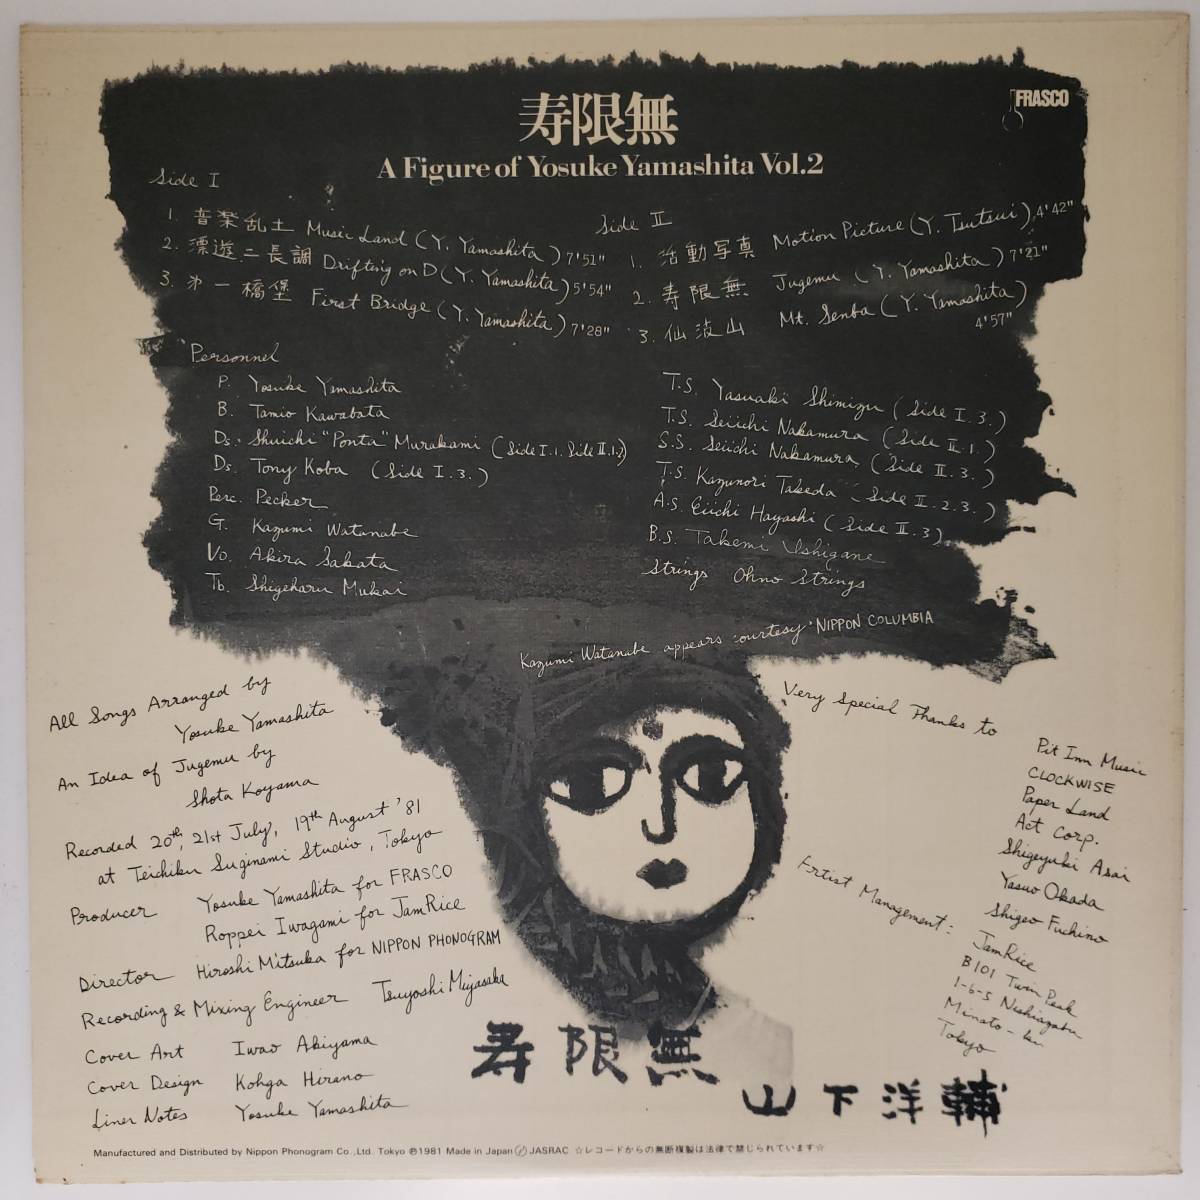 寿限無
A Figure of Yosuke Yamashita Vol.2
FRASCO
Side I
1. 音楽乱土 Music Land (Y. Yamashita) 7'51"
2. 漂遊二長調 Drifting on D (Y. Yamashita) 5'54"
3. 第一橋堡 First Bridge (Y. Yamashita) 7'28"
Side II
1. 活動写真 Motion Picture (Y. Tsutsui) 4'42"
2. 寿限無 Jugemu (Y. Yamashita) 7'21"
3. 仙波山 Mt. Senba (Y. Yamashita)
4'57"
Personnel
P. Yosuke Yamashita
B. Tamio Kawabata
Ds. Shuichi "Ponta" Murakami (Side I.1. Side II.1.2)
Ds. Tony Koba (Side I.3.)
Perc. Pecker
G. Kazumi Watanabe
Vo. Akira Sakata
Tb. Shigeharu Mukai
T.S. Yasuaki Shimizu (Side I.3.)
T.S. Seiichi Nakamura (Side II.1.)
S.S. Seiichi Nakamura (Side II.3.)
T.S. Kazunori Takeda (Side II.2.3.)
A.S. Eiichi Hayashi (Side II.3)
B.S. Takemi Ushigane
Strings Ohno Strings
Kazumi Watanabe appears courtesy NIPPON COLUMBIA
All Songs Arranged by
Yosuke Yamashita
An Idea of Jugemu by
Shota Koyama
Recorded 20th, 21st July, 19th August '81
at Teichiku Suginami Studio, Tokyo
Producer Yosuke Yamashita for FRASCO
Roppei Iwagami for JamRice
Director Hiroshi Mitsuka for NIPPON PHONOGRAM
Recording & Mixing Engineer Tsuyoshi Miyasaka
Cover Art Iwao Akiyama
Cover Design Kohga Hirano
Liner Notes Yosuke Yamashita
Very Special Thanks to
Pit Inn Music
CLOCKWISE
Paper Land
Act Corp.
Shigeyuki Asai
Yasuo Okada
Shigeo Fuchino
Artist Management:
JamRice
B101 Twin Peak
1-6-5 Nishiazabu
Minato-ku
Tokyo
寿限無
山下洋輔
Manufactured and Distributed by Nippon Phonogram Co.,Ltd. Tokyo ℗1981 Made in Japan JASRAC ☆レコードからの無断複製は法律で禁じられています☆